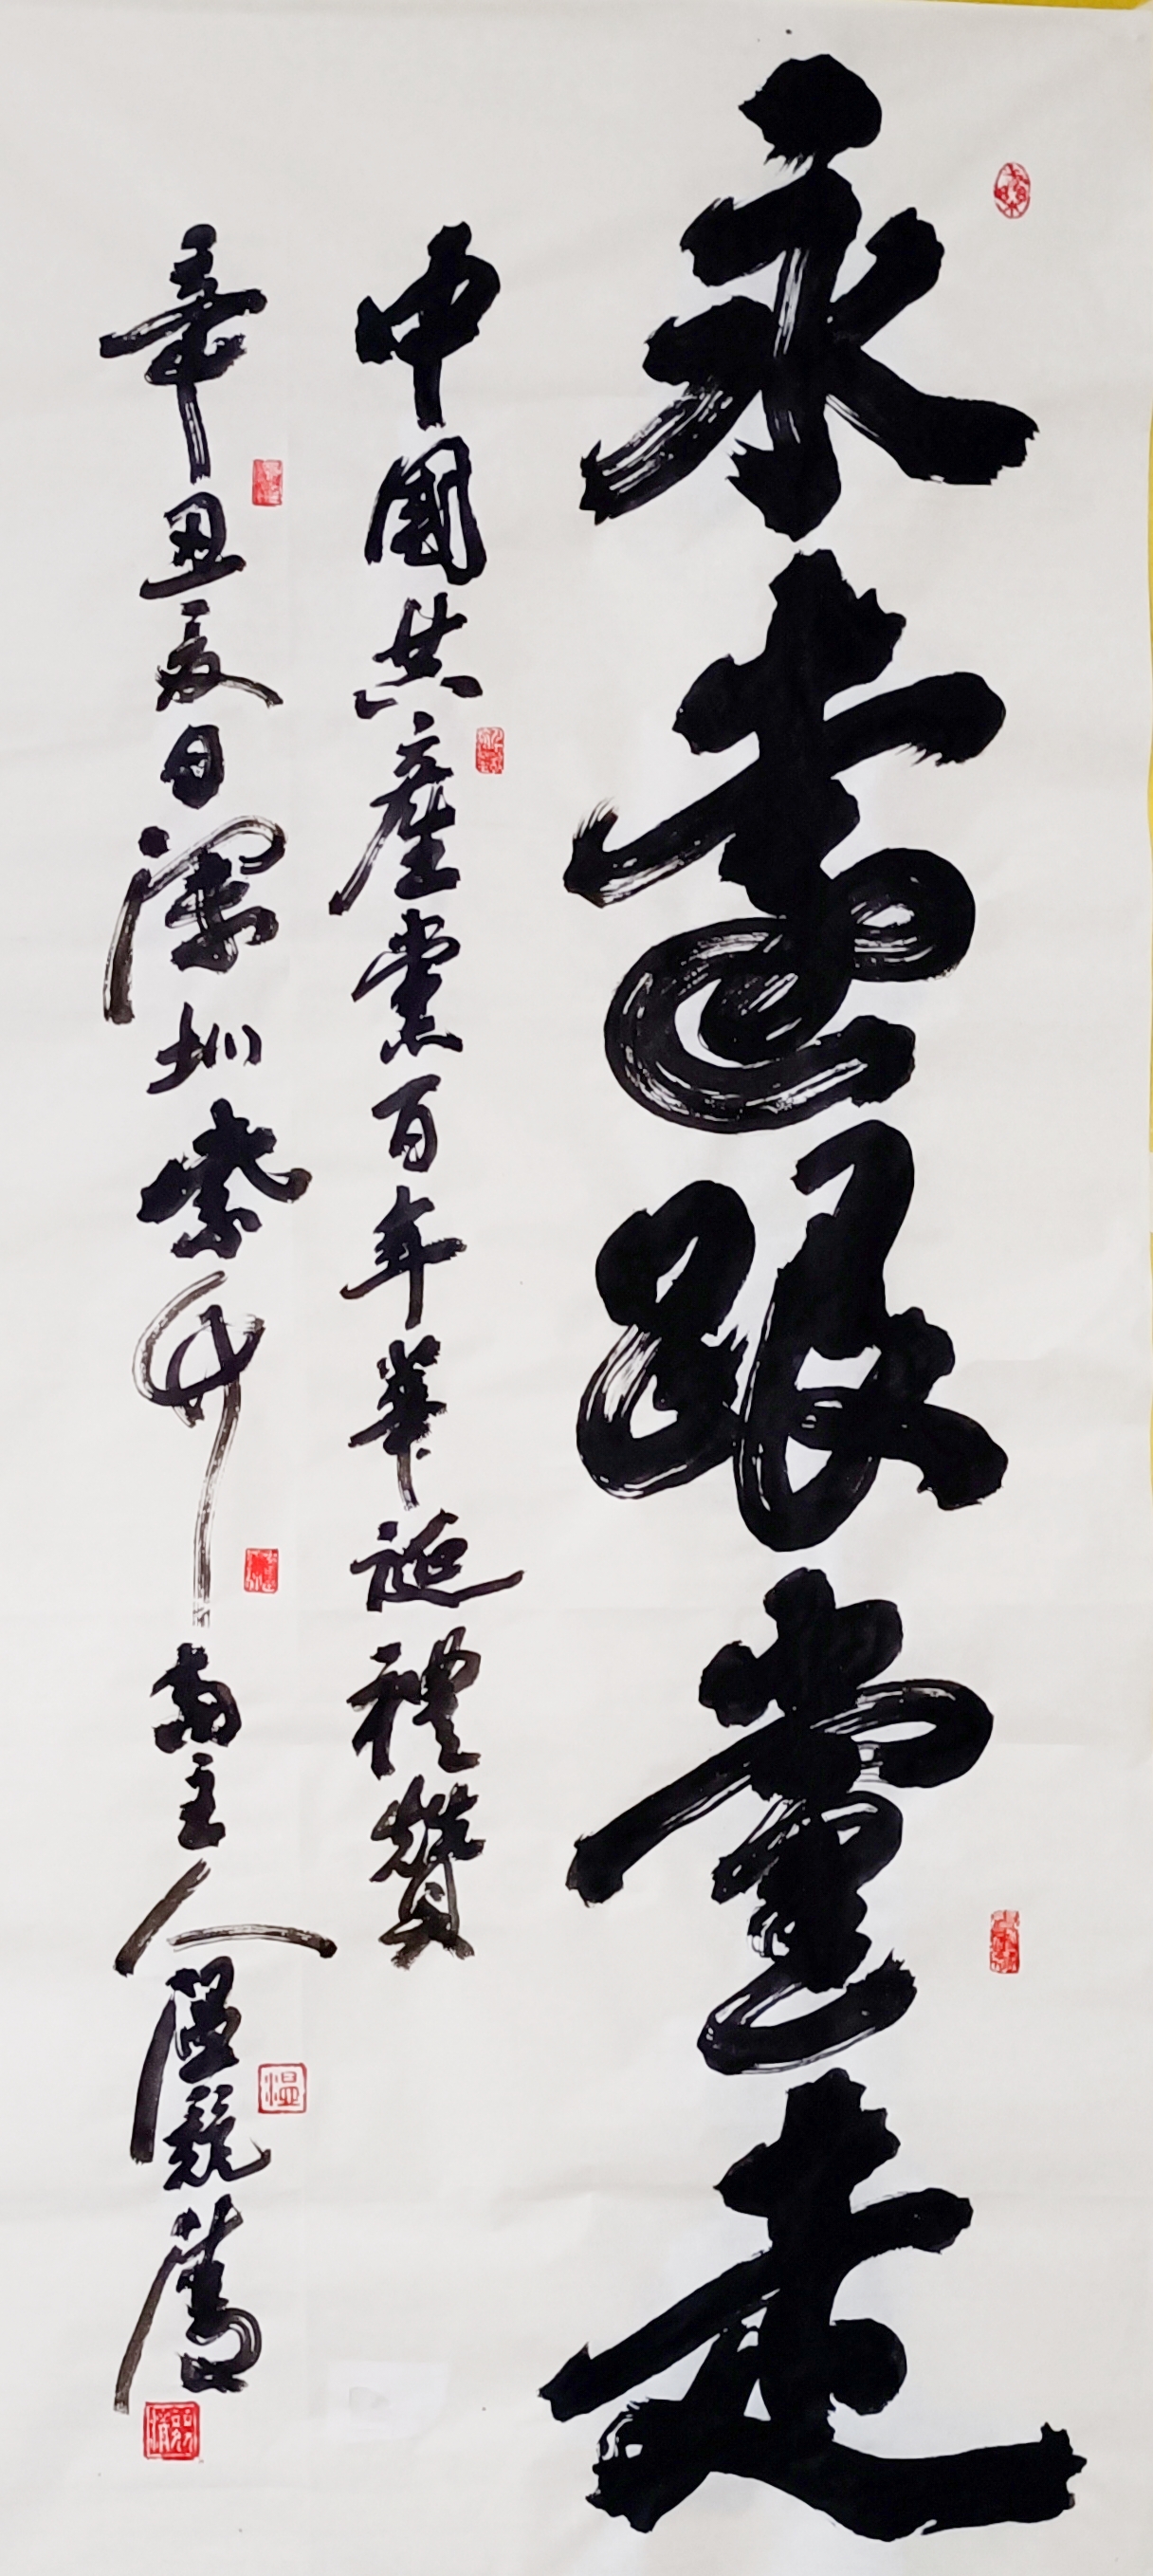 永远跟党走
中國共產党百年華誕禮贊
辛丑夏日深圳紫竹齋主人溫競
溫